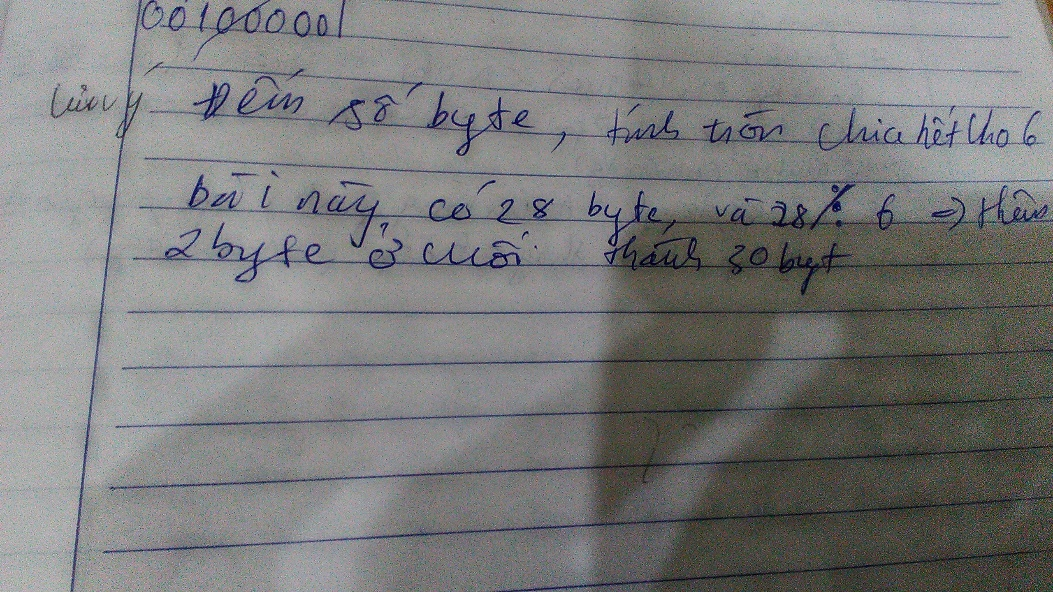 001000001
Lưu ý Đếm số byte, tính tròn chia hết cho 6
bài này có 28 byte, và 28 % 6 => thêm
2 byte ở cuối thành 30 byt